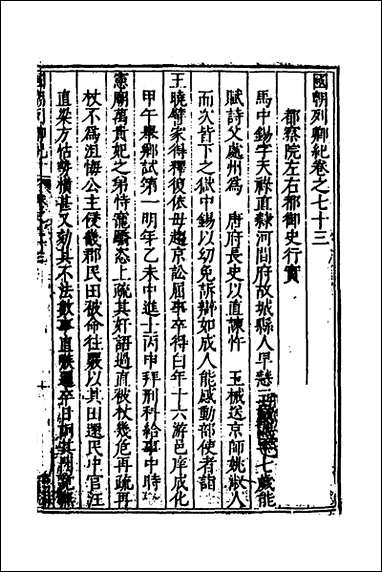 國朝列卿紀卷之七十三
都察院左右都御史行實
馬中錫字天祿直隸河間府故城縣人早慧三歲七歲能
賦詩父處州爲 唐府長史以直諫忤 王械送京師姚淑人
而次皆下之獄中錫以幼免訴辯如成人能感動部使者詣
王曉譬家得釋彼依母趨京訟屈事卒得白年十六游邑庠成化
甲午舉鄉試第一明年乙未中進士丙申拜刑科給事中時
憲廟萬貴妃之弟恃寵驕恣上疏其奸語過直被杖幾危再疏再
杖不爲沮悔公主侵畿郡民田被命往覈以其田還民中官汪
直梁方怙勢橫甚又劾其不法數事直嗾邏卒日詗其門竟無
國朝列卿紀